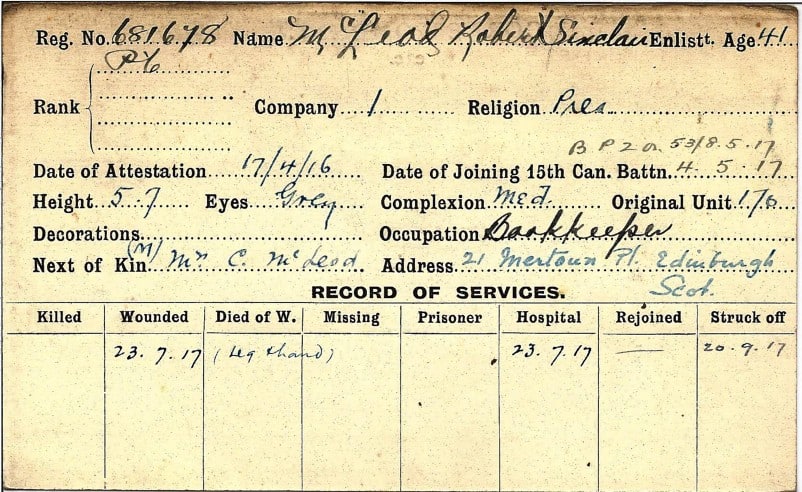 Reg. No. 681678 Name McLeod Robert Sinclair Enlistt. Age 41
Pte
Rank Company 1 Religion Pres
B P 2 on 53/8.5.17
Date of Attestation 17/4/16 Date of Joining 15th Can. Battn. 4.5.17
Height 5.7 Eyes Grey Complexion Med. Original Unit 170
Decorations Occupation Bookkeeper
Next of Kin (M) Mrs C. McLeod Address 21 Mertoun Pl. Edinburgh
Scot.
RECORD OF SERVICES.
Killed Wounded Died of W. Missing Prisoner Hospital Rejoined Struck off
23.7.17 (Leg & hand) 23.7.17 — 20.9.17